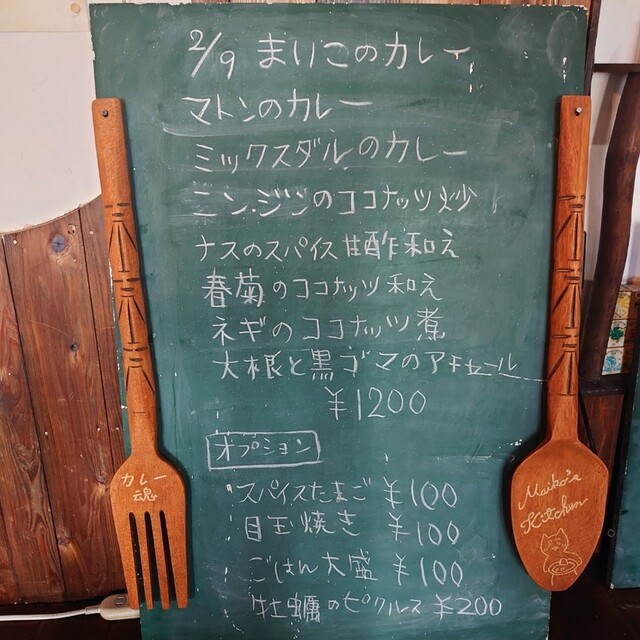 2/9 まいこのカレー
マトンのカレー
ミックスダルのカレー
ニンジンのココナッツ炒
ナスのスパイス甘酢和え
春菊のココナッツ和え
ネギのココナッツ煮
大根と黒ゴマのアチャール
¥1200
オプション
スパイスたまご ¥100
目玉焼き ¥100
ごはん大盛 ¥100
牡蠣のピクルス ¥200
カレー
魂
Maiko's
Kitchen